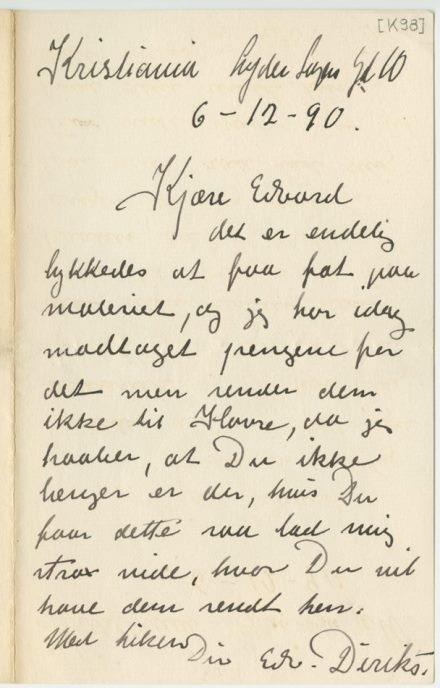 [K98]
Kristiania Lyder Sagens Gd 10
6 - 12 - 90.
Kjære Edvard
det er endelig
lykkedes at faa fat paa
maleriet, og jeg har idag
modtaget pengene for
det men sender dem
ikke til Havre, da jeg
haaber, at Du ikke
længer er der, hvis Du
faar dette saa lad mig
strax vide, hvor Du vil
have dem sendt hen.
Med hilsen
Din Edv. Diriks.